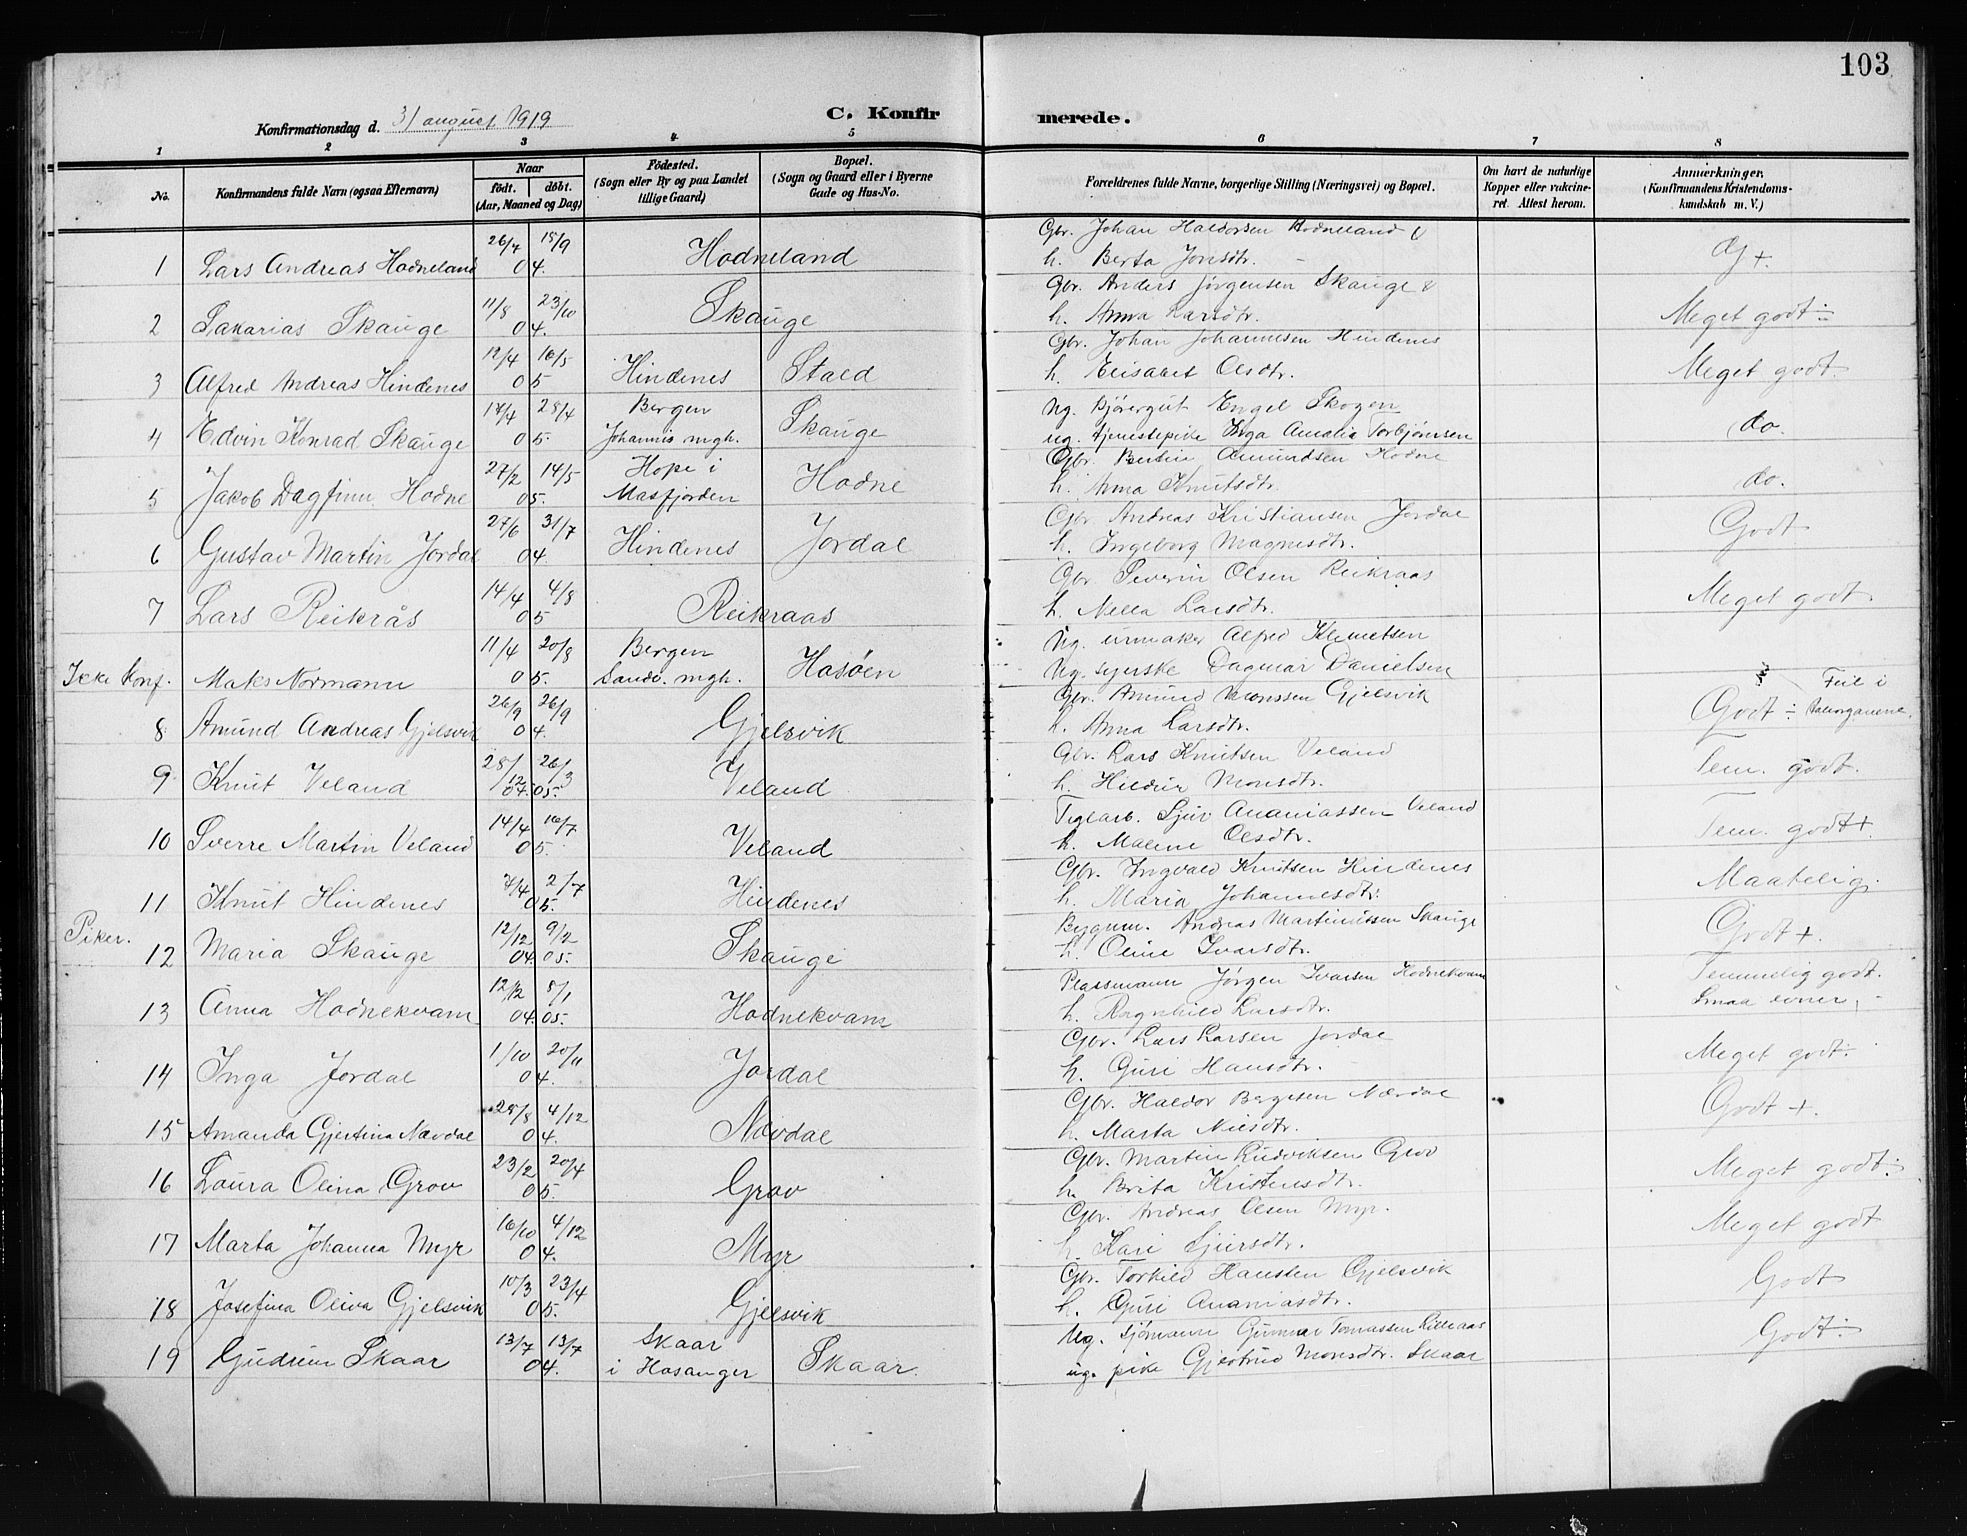 103
Konfirmationsdag d. 31 august 1919
C. Konfirmerede.
1 2 3 4 5 6 7 8
No. Konfirmandens fulde Navn (ogsaa Efternavn) Naar födt. döbt. (Aar, Maaned og Dag) Födested. (Sogn eller By og paa Landet tillige Gaard) Bopæl. (Sogn og Gaard eller i Byerne Gade og Hus-No. Forældrenes fulde Navne, borgerlige Stilling (Næringsvei) og Bopæl. Om havt de naturlige Kopper eller vakcineret. Attest herom. Anmærkninger. (Konfirmandens Kristendomskundskab m. V.)
Gbr. Johan Haldorsen Hodneland &
1 Lars Andreas Hodneland 26/7 15/9 04. Hodneland h. Berta Jonsdtr. G +
Gbr. Anders Jørgensen Skauge &
2 Sakarias Skauge 11/8 23/10 04. Skauge h. Anna Larsdtr. Meget godt ÷
Gbr. Johan Johannesen Hindenes
3 Alfred Andreas Hindenes 12/4 16/5 05 Hindenes Stald h. Elisabet Olsdtr. Meget godt
Ug. kjøregut Engel Skogen
4 Edvin Konrad Skauge 17/4 28/4 05. Bergen Johannis mgh. Skauge ug. tjenestepike Inga Amalia Torbjörnsen do.
Gbr. Bertin Amundsen Hodne
5 Jakob Dagfinn Hodne 27/2 14/5 05. Hope i Masfjorden Hodne h. Anna Knutsdtr. do.
Gbr. Andreas Kristiansen Jordal
6 Gustav Martin Jordal 27/6 31/7 04. Hindenes Jordal h. Ingeborg Magnesdtr. Godt
Gbr. Severin Olsen Reikraas
7 Lars Reikrås 14/4 4/8 05 Reikraas h. Nella Larsdtr. Meget godt
Ug. urmaker Alfred Klemetsen
Ikke konf. Maks Normann 11/4 20/8 05. Bergen Sandv. mgh. Hosöen Ug. syerske Dagmar Danielsen
Gbr. Amund Monssen Gjelsvik
8 Amund Andreas Gjelsvik 26/9 26/9 04. Gjelsvik h. Anna Larsdtr. Godt ÷ Feil i taleorganene.
Gbr. Lars Knutsen Veland
9 Knut Veland 28/12 04. 26/3 05. Veland h. Hildur Monsdtr. Tem. godt.
Teglarb. Sjur Ananiassen Veland
10 Sverre Martin Veland 14/4 16/7 05. Veland h. Malene Olsdtr. Tem. godt+
Gbr. Ingvald Knutsen Hindenes
11 Knut Hindenes 7/4 2/7 05. Hindenes h. Maria Johannesdtr. Maatelig.
Piker.
Bygnm. Andreas Martinussen Skauge
12 Maria Skauge 12/12 04. 9/2 05. Skauge h. Oline Ivarsdtr. Godt +.
Plassmann Jørgen Ivarsen Hodnekvam
13 Anna Hodnekvam 12/12 04. 8/1 05. Hodnekvam h. Ragnhild Larsdtr. Temmelig godt. Smaa evner.
Gbr. Lars Larsen Jordal
14 Inga Jordal 1/10 20/11 04. Jordal h. Guri Hansdtr. Meget godt ÷
Gbr. Haldor Bergesen Nævdal
15 Amanda Gjertina Nævdal 28/8 4/12 04. Nævdal h. Marta Nilsdtr. Godt +.
Gbr. Martin Ludviksen Grov
16 Laura Olina Grov 23/2 20/4 05. Grov h. Brita Kristensdtr. Meget godt ÷
Gbr. Andreas Olsen Myr.
17 Marta Johanna Myr 16/10 4/12 04. Myr h. Kari Sjursdtr. Meget godt
Gbr. Torkild Hansten Gjelsvik
18 Josefina Oliva Gjelsvik 10/3 23/4 05. Gjelsvik h. Guri Ananiasdtr. Godt
Ug. sjømann Gunnar Tomassen Lilleaas
19 Gudrun Skaar 13/7 13/7 04. Skaar i Hosanger Skaar. ug. pike Gjertrud Monsdtr. Skaar Godt ÷